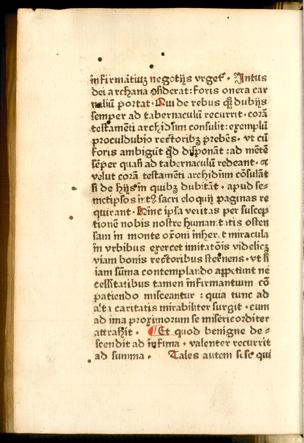 infirmātiuʒ negotijs vrgeť. Intus
dei archana ɔſiderat: foris onera car
naliū portat. Qui de rebus qͥꝫ dubijs
semper ad tabernaculū recurrit. corā
testamēti archa dn̄m consulit: exemplū
proculdubio rectoribꝫ prebēs. vt cū
foris ambigūt qͥd disponāt: ad mētē
sēper quasi ad tabernaculū redeant. ⁊
velut corā testamēti archa dn̄m cōsulāt
si de hijs in quibꝫ dubitāt. apud se-
metipsos intͣ sacri eloquij paginas re
quirant. Hinc ipsa veritas per suscep
tionē nobis nostre humanitatis osten
sam in monte orōni inheret. miracula
in vrbibus exercet imitatōis videlicꝫ
viam bonis rectoribus sternens. vt si
iam sūma contemplando appetunt ne
cessitatibus tamen infirmantium cō
patiendo misceantur: quia tunc ad
alta caritas mirabiliter surgit. cum
ad ima proximorum se misericorditer
attrahit. ¶ Et quod benigne de-
scendit ad infima. valenter recurrit
ad summa. Tales autem sese qui